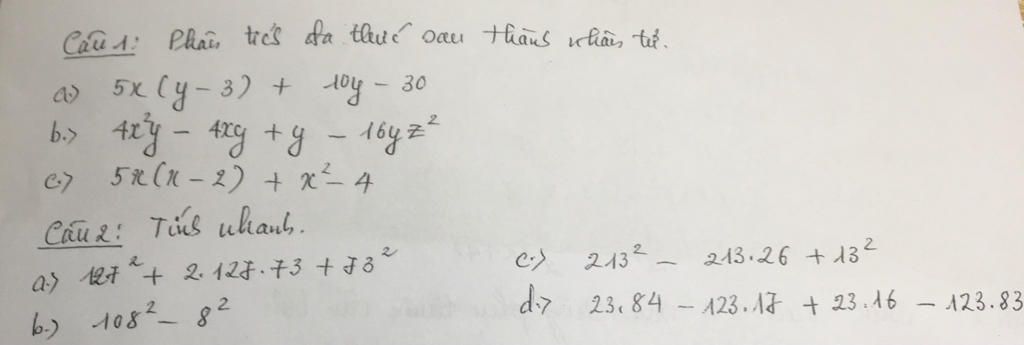 Câu 1: Phân tích đa thức sau thành nhân tử.
a.) 5x(y - 3) + 10y - 30
b.) 4x²y - 4xy + y - 16yz²
c.) 5x(x - 2) + x² - 4
Câu 2: Tính nhanh.
a.) 127² + 2.127.73 + 73²
b.) 108² - 8²
c.) 213² - 213.26 + 13²
d.) 23.84 - 123.17 + 23.16 - 123.83